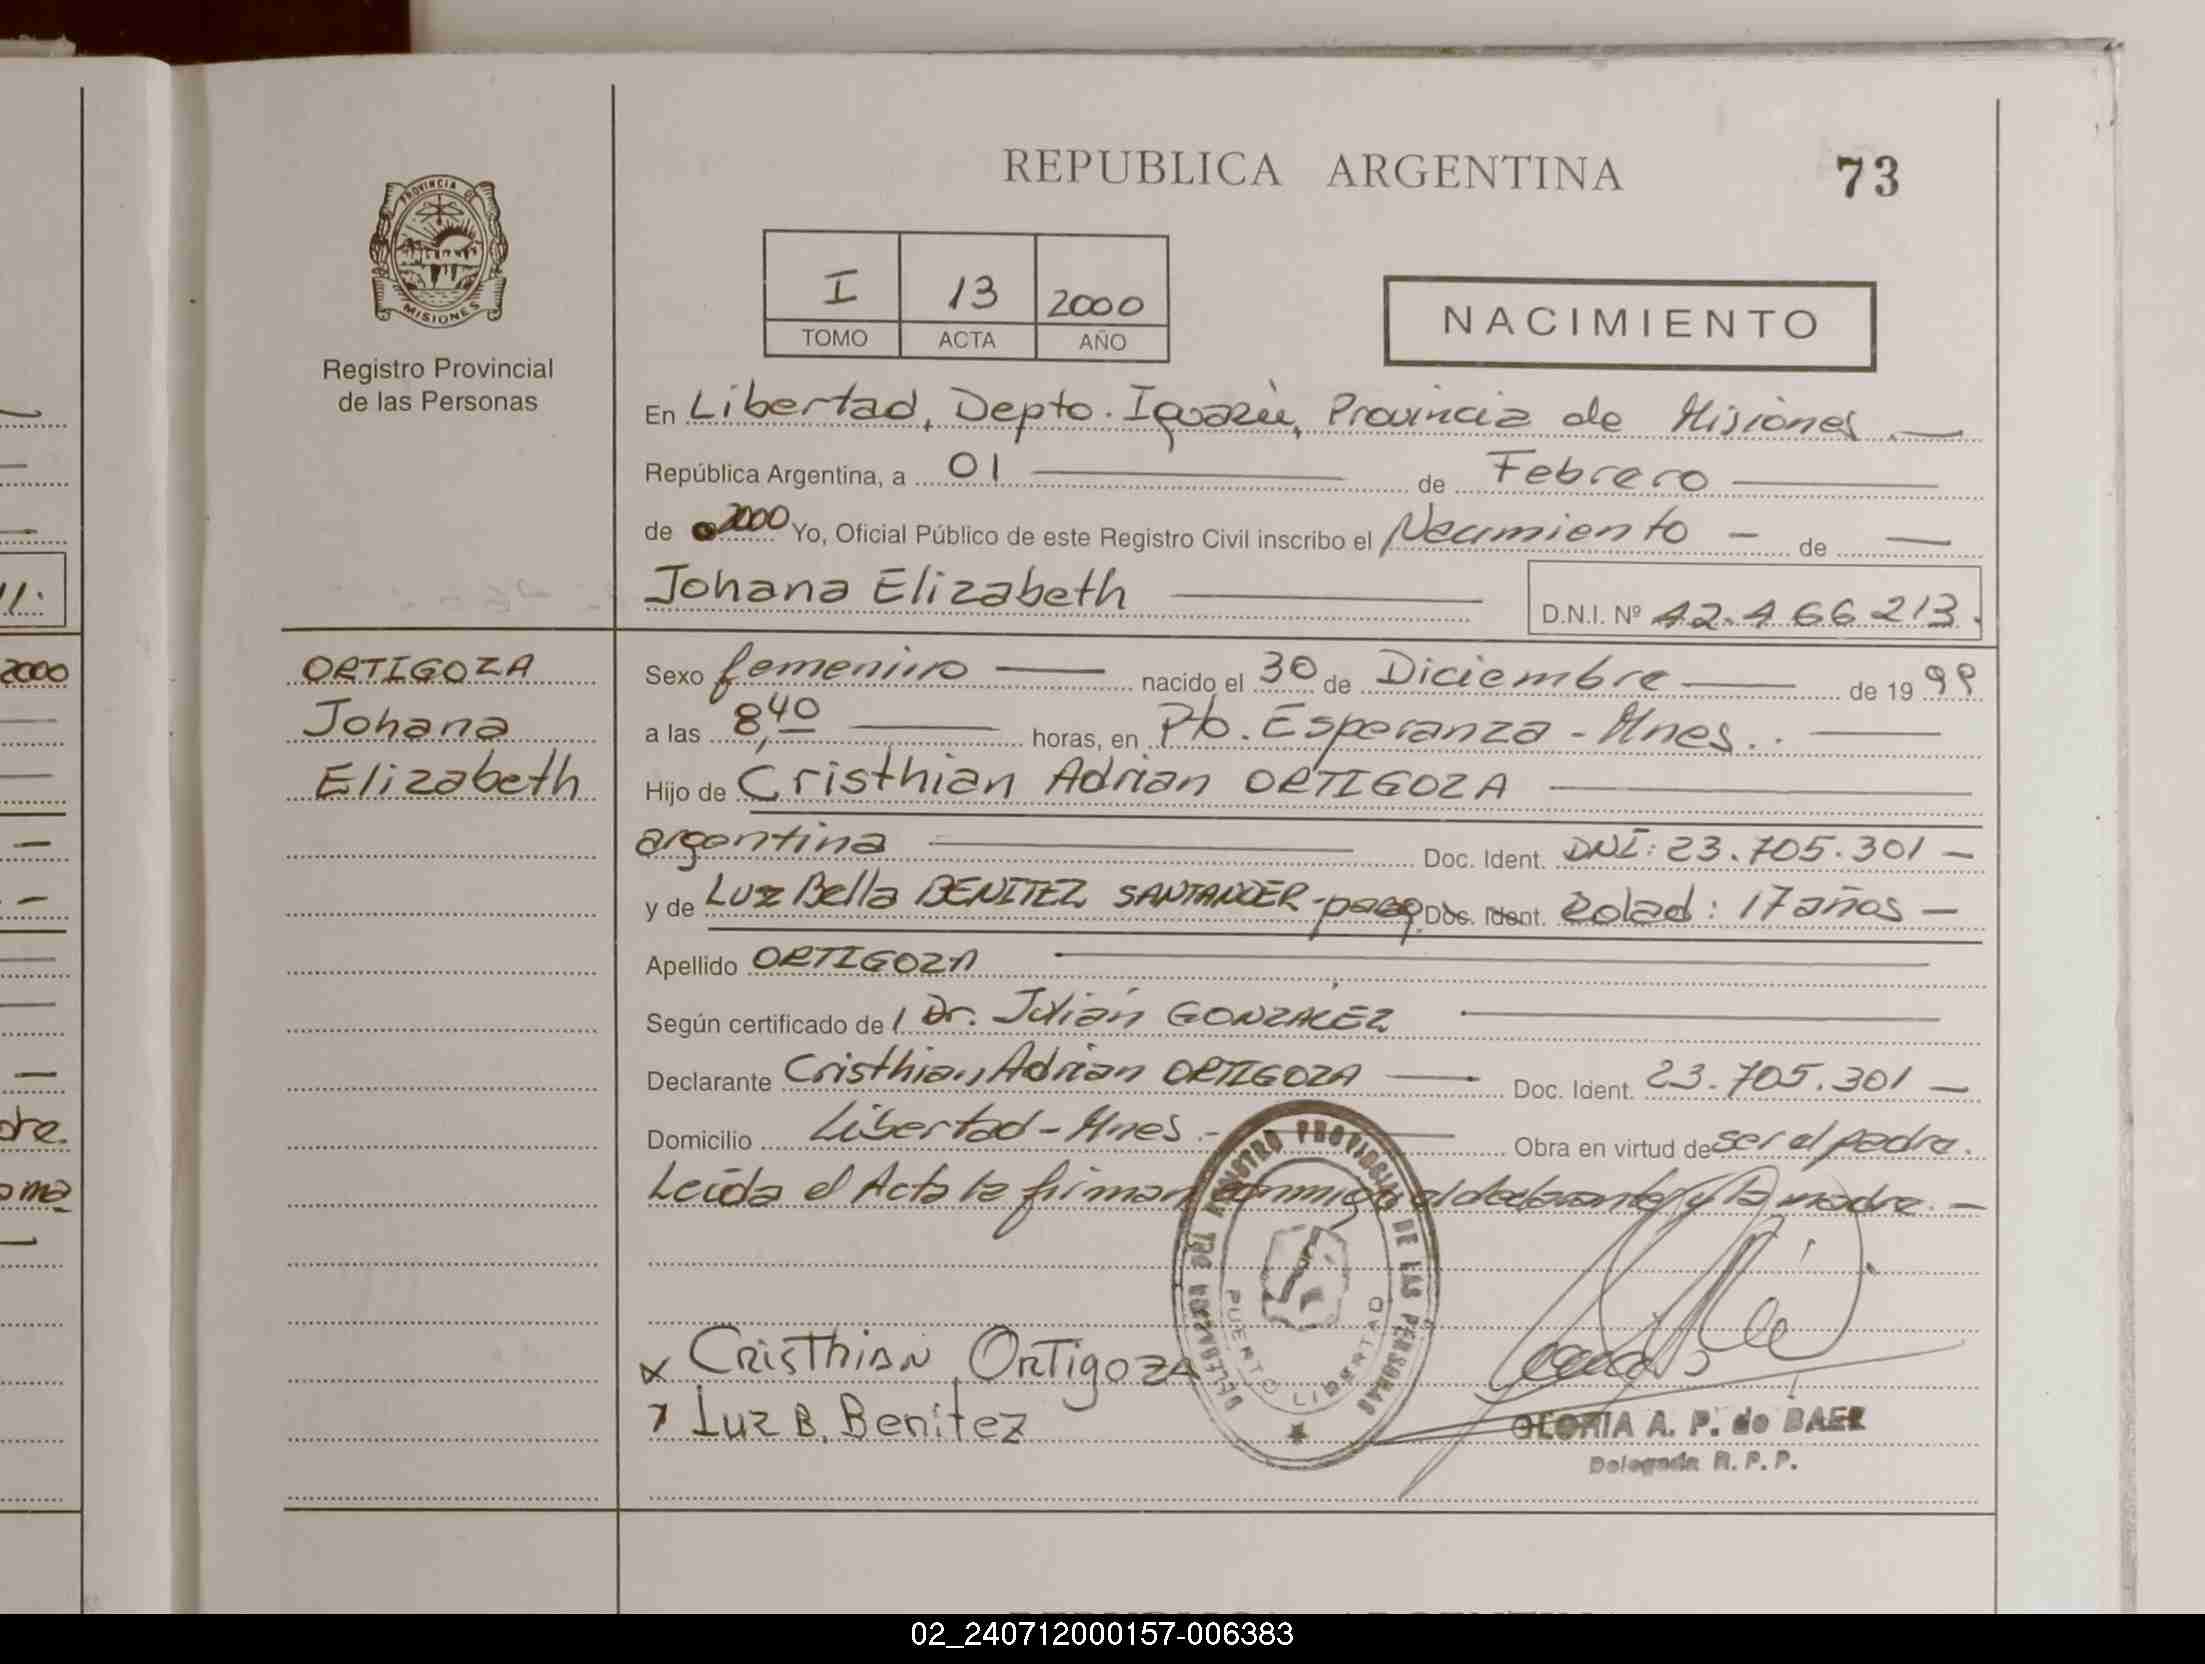 REPUBLICA ARGENTINA
73
PROVINCIA DE
MISIONES
Registro Provincial
de las Personas
I 13 2000
TOMO ACTA AÑO
NACIMIENTO
En Libertad, Depto. Iguazú, Provincia de Misiones. —
República Argentina, a 01 — de Febrero —
de 2000 Yo, Oficial Público de este Registro Civil inscribo el Nacimiento — de —
Johana Elizabeth —
D.N.I. Nº 42.466213.
ORTIGOZA
Johana
Elizabeth
Sexo femenino — nacido el 30 de Diciembre — de 1999
a las 8,40 — horas, en Pto. Esperanza - Mnes. . —
Hijo de Cristhian Adrian ORTIGOZA —
argentina — Doc. Ident. DNI: 23.705.301 —
y de Luz Bella BENITEZ SANTANDER - parag. Doc. Ident. Edad: 17 años —
Apellido ORTIGOZA —
Según certificado de / Dr. Julián GONZALEZ —
Declarante Cristhian Adrian ORTIGOZA — Doc. Ident. 23.705.301 —
Domicilio Libertad - Mnes. - — Obra en virtud de ser el padre.
Leída el Acta la firman conmigo el declarante y la madre. —
DELEGACION DEL REGISTRO PROVINCIAL DE LAS PERSONAS
PUERTO LIBERTAD
x Cristhian Ortigoza
Luz B. Benitez
GLORIA A. P. de BAER
Delegada R. P. P.
2000
02_240712000157-006383